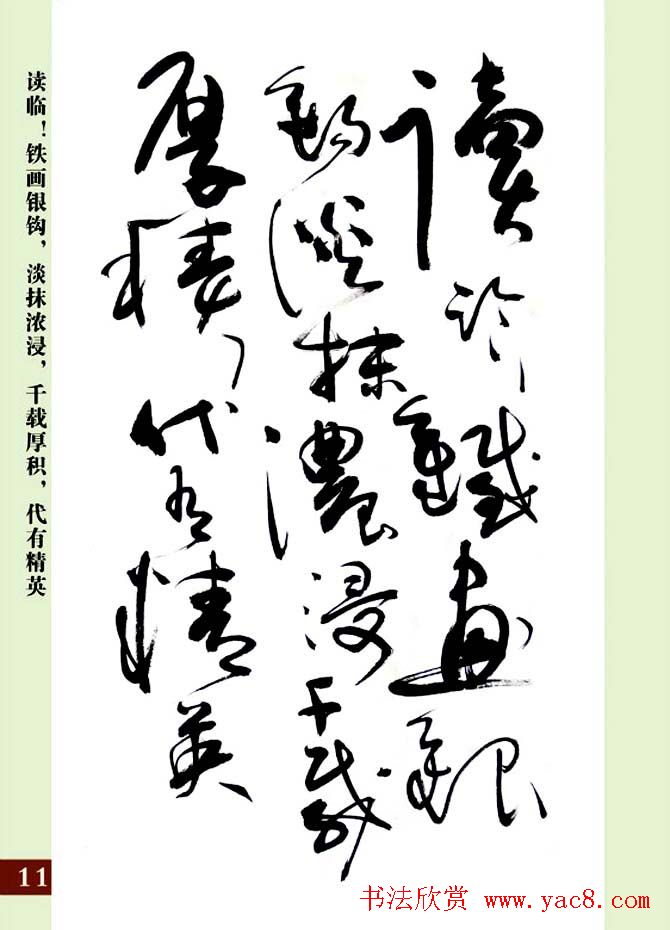 讀臨鐵畫銀
鈎淡抹濃浸千載
厚積代有精英
读临！铁画银钩，淡抹浓浸，千载厚积，代有精英
11
书法欣赏 www.yac8.com